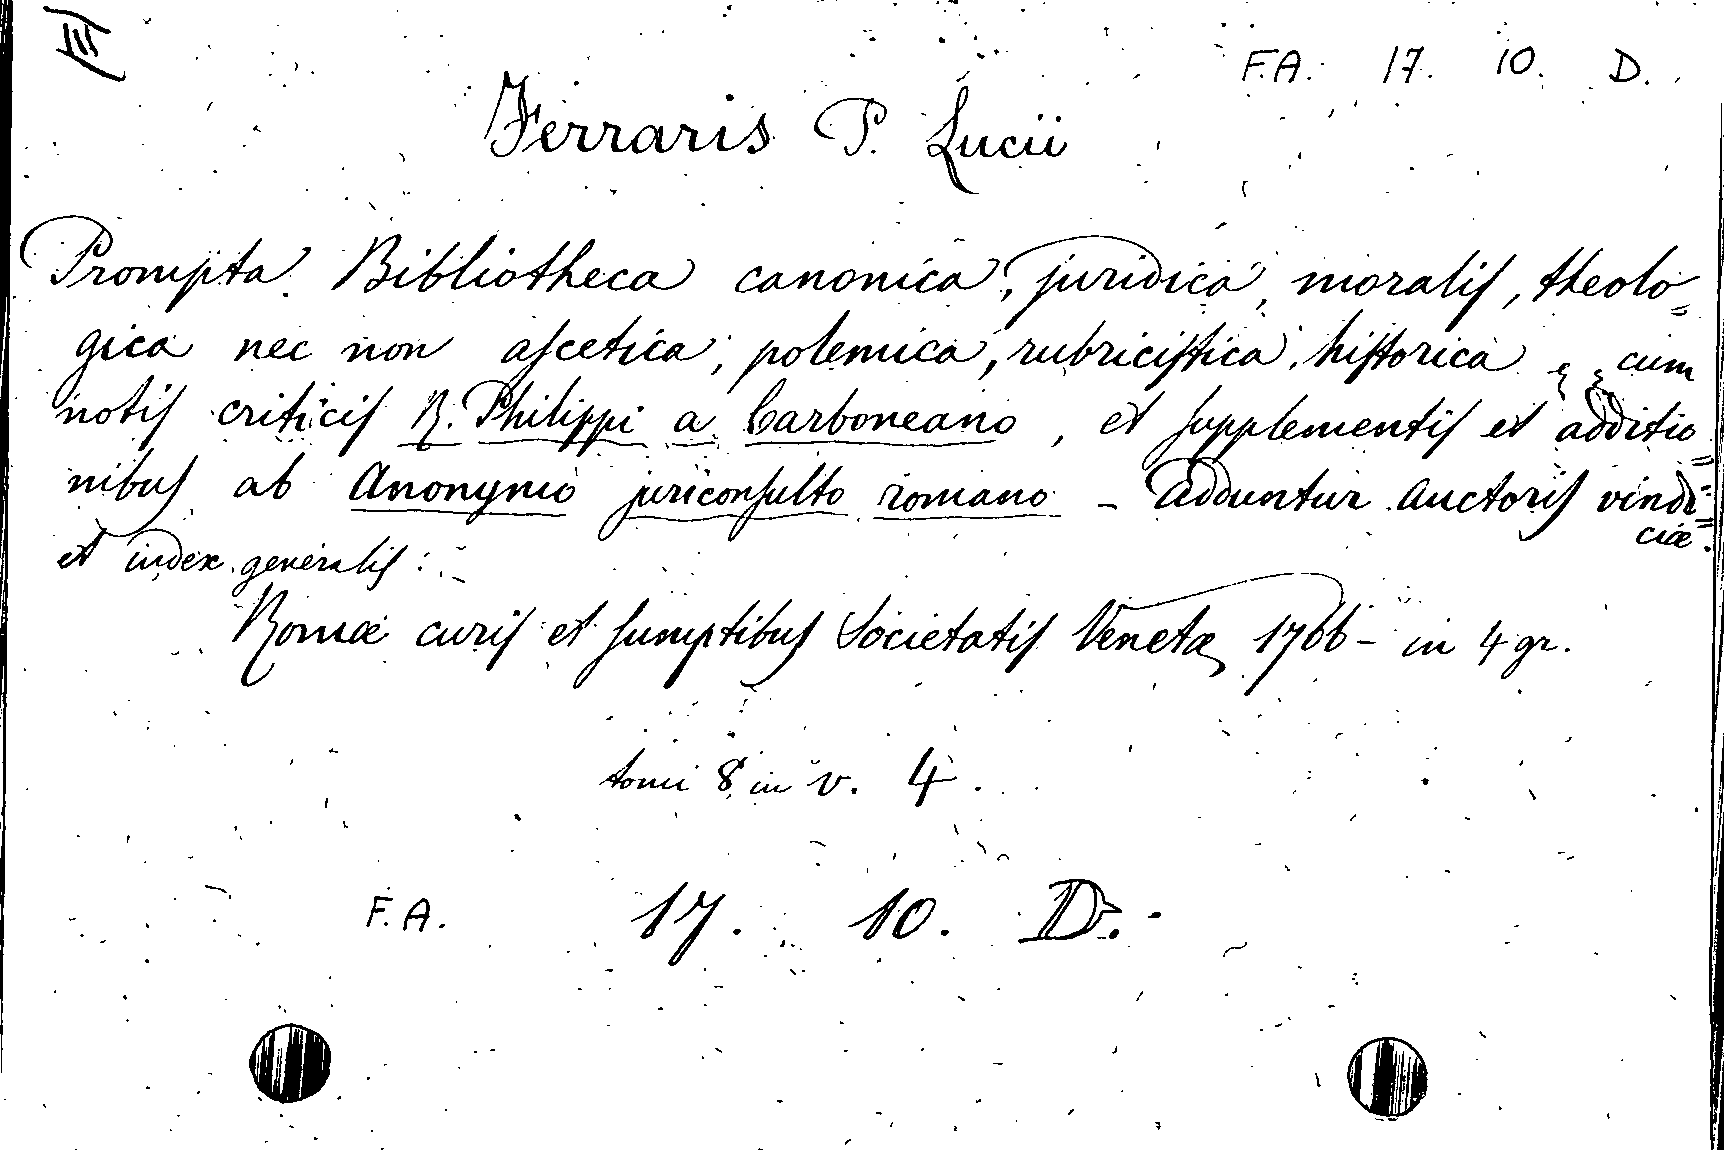 III
F.A. 17. 10. D.
Ferraris P. Lucii
Prompta Bibliotheca canonica, juridica, moralis, theolo=
gica nec non ascetica, polemica, rubricistica, historica cum
notis criticis R. Philippi a Carboneano, et supplementis et additio=
nibus ab Anonymo juriconsulto romano - Adduntur Auctoris vindi=
ciæ.
et index generalis :-
Romæ curis et sumptibus Societatis Venetæ 1766 - in 4 gr.
tomi 8 in v. 4.
F.A. 17. 10. D.